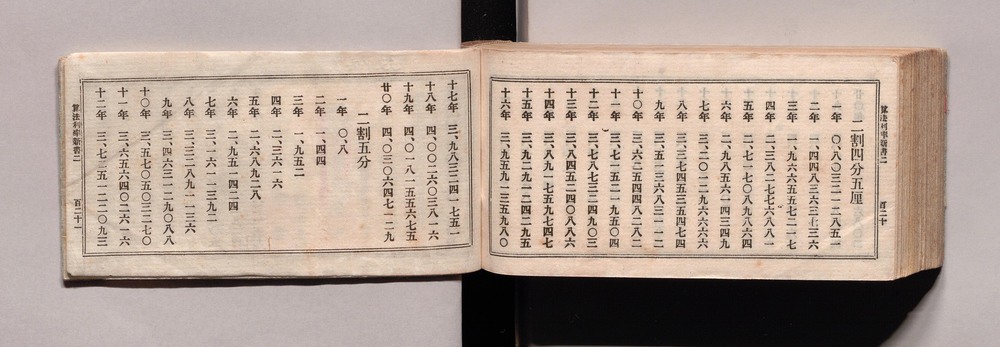 二割四分五厘
一年 〇、八〇三二一二八五一
二年 一、四四八三六三七三六
三年 一、九六六五五七二一七
四年 二、三八二七七六八八一
五年 二、七一七〇八九八六四
六年 二、九八五六一四三四九
七年 三、二〇一二九六六六六
八年 三、三七四五三五四七四
九年 三、五一三六八三一一二
十〇年 三、六二五四四八二八二
十一年 三、七一五二一九五〇四
十二年 三、七八七三二四九〇三
十三年 三、八四五二四〇八八六
十四年 三、八九一七五九七四七
十五年 三、九二九一二四二九五
十六年 三、九五九一三五九八〇
算法利率新書二 百二十
十七年 三、九八三二四一七五一
十八年 四、〇〇二六〇三八一六
十九年 四、〇一八一五五六七五
廿〇年 四、〇三〇六四七一二九
二割五分
一年 〇、八
二年 一、四四
三年 一、九五二
四年 二、三六一六
五年 二、六八九二八
六年 二、九五一四二四
七年 三、一六一一三九二
八年 三、三二八九一一三六
九年 三、四六三一二九〇八八
十〇年 三、五七〇五〇三二七〇
十一年 三、六五六四〇二六一六
十二年 三、七二五一二二〇九三
算法利率新書二 百二十一